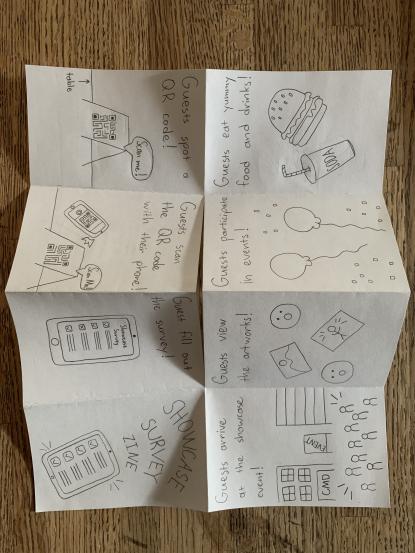 SHOWCASE
SURVEY
ZINE
Guests arrive
at the showcase
event!
EVENT
CMD
Guests view
the artworks!
Guests participate
in events!
Guests eat yummy
food and drinks!
SODA
Guests spot a
QR code!
Scan me!
table
Guests scan
the QR code
with their phone!
Scan Me!
Guest fill out
the survey!
Showcase
Survey